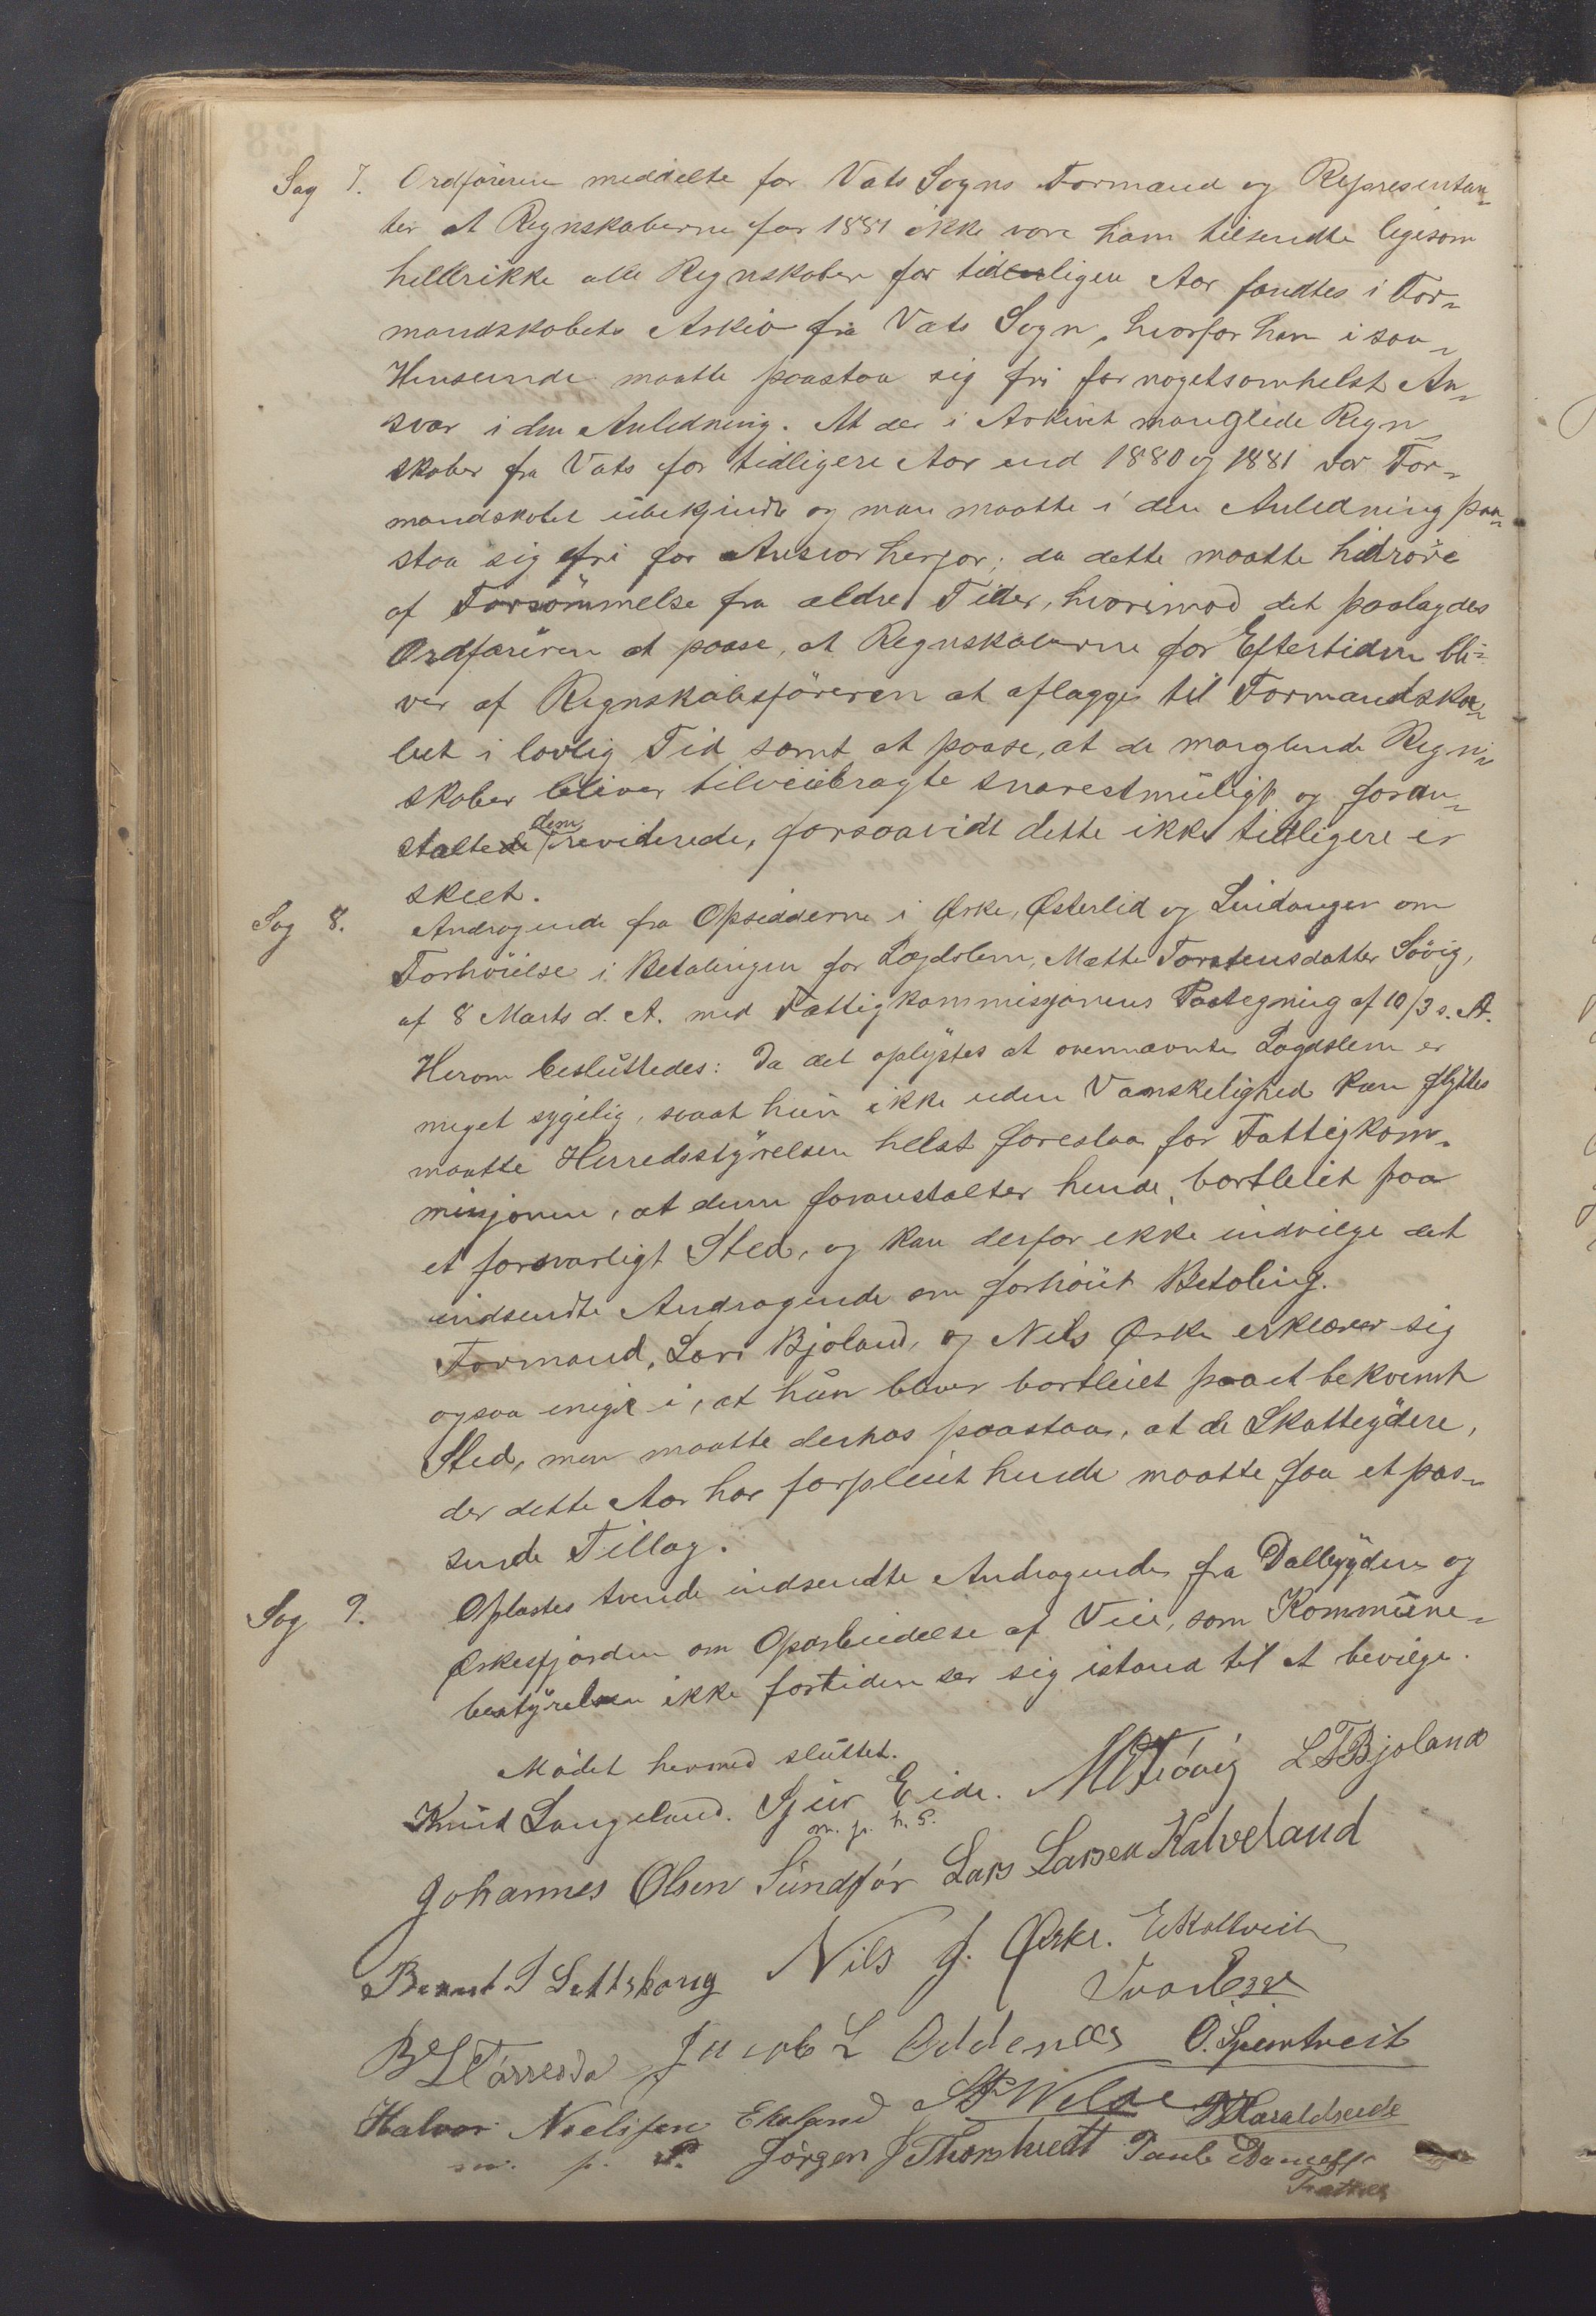 Sag 7. Ordføreren meddelte for Vats Sogns Formænd og Representan-
ter at Regnskaberne for 1881 ikke vare ham tilsendte ligesom
hellerikke alle Regnskaber for tidligere Aar fandtes i For-
mandskabets Arkiv fra Vats Sogn, hvorfor han i saa-
Henseende maatte paastaa sig fri for nogetsomhelst An-
svar i den Anledning. At der i Arkivet manglede Regn-
skaber fra Vats for tidligere Aar end 1880 og 1881 var For-
mandskabet übekjendt og man maatte i den Anledning paa-
staa sig fri for Ansvar herfor; da dette maatte hidrøre
af Forsömmelse fra ældre Tider, hvorimod det paalagdes
Ordføreren at paase, at Regnskaberne for Eftertiden bli-
ver af Regnskabsføreren at aflægges til Formandska-
bet i lovlig Tid samt at paase, at de manglende Regn-
skaber bliver tilveiebragte snarestmüligt og foran-
stalte dem reviderede, forsaavidt dette ikke tidligere er
skeet.
Sag 8. Andragende fra Opsidderne i Ørke, Østerlid og Lindanger om
Forhöielse i Betalingen for Lægdslem, Mætte Torstensdatter Sövig,
af 8 Marts d. A. med Fattigkommisjonens Paategning af 10/3 s. A.
Herom besluttedes: Da det oplystes at ovennævnte Lægdslem er
meget sygelig, saaat hun ikke uden Vanskelighed kan flyttes
maatte Herredsstyrelsen helst foreslaa for Fattigkom-
misjonen, at denne foranstalter hende bortleiet paa
et forsvarligt Sted, og kan derfor ikke indvilge det
indsendte Andragende om forhöiet Betaling.
Formand, Lars Bjoland, og Nils Ørke erklærer sig
ogsaa enige i, at hun bliver bortleiet paa et bekvemt
Sted, men maatte derhos paastaa, at de Skatteydere,
der dette Aar har forpleiet hende maatte faa et pas-
sende Tillæg.
Sag 9. Oplæstes tvende indsendte Andragender fra Dalbygden og
Ørkesfjorden om Oparbeidelse af Veie, som Kommune-
bestyrelsen ikke fortiden ser sig istand til at bevilge.
Mödet hermed sluttet.
Knut Langeland. Sjur Eide. L T Bjoland
m. p. P.
Johannes Olsen Sundför Lars Larsen Kalveland
Bernt S Lettskoug Nils J. Ørke. E Kallveit
Jacob L Oddenæs
Halvor Nielsen Ekeland Haraldseide
m. p. P. Jörgen J Thorstveitt